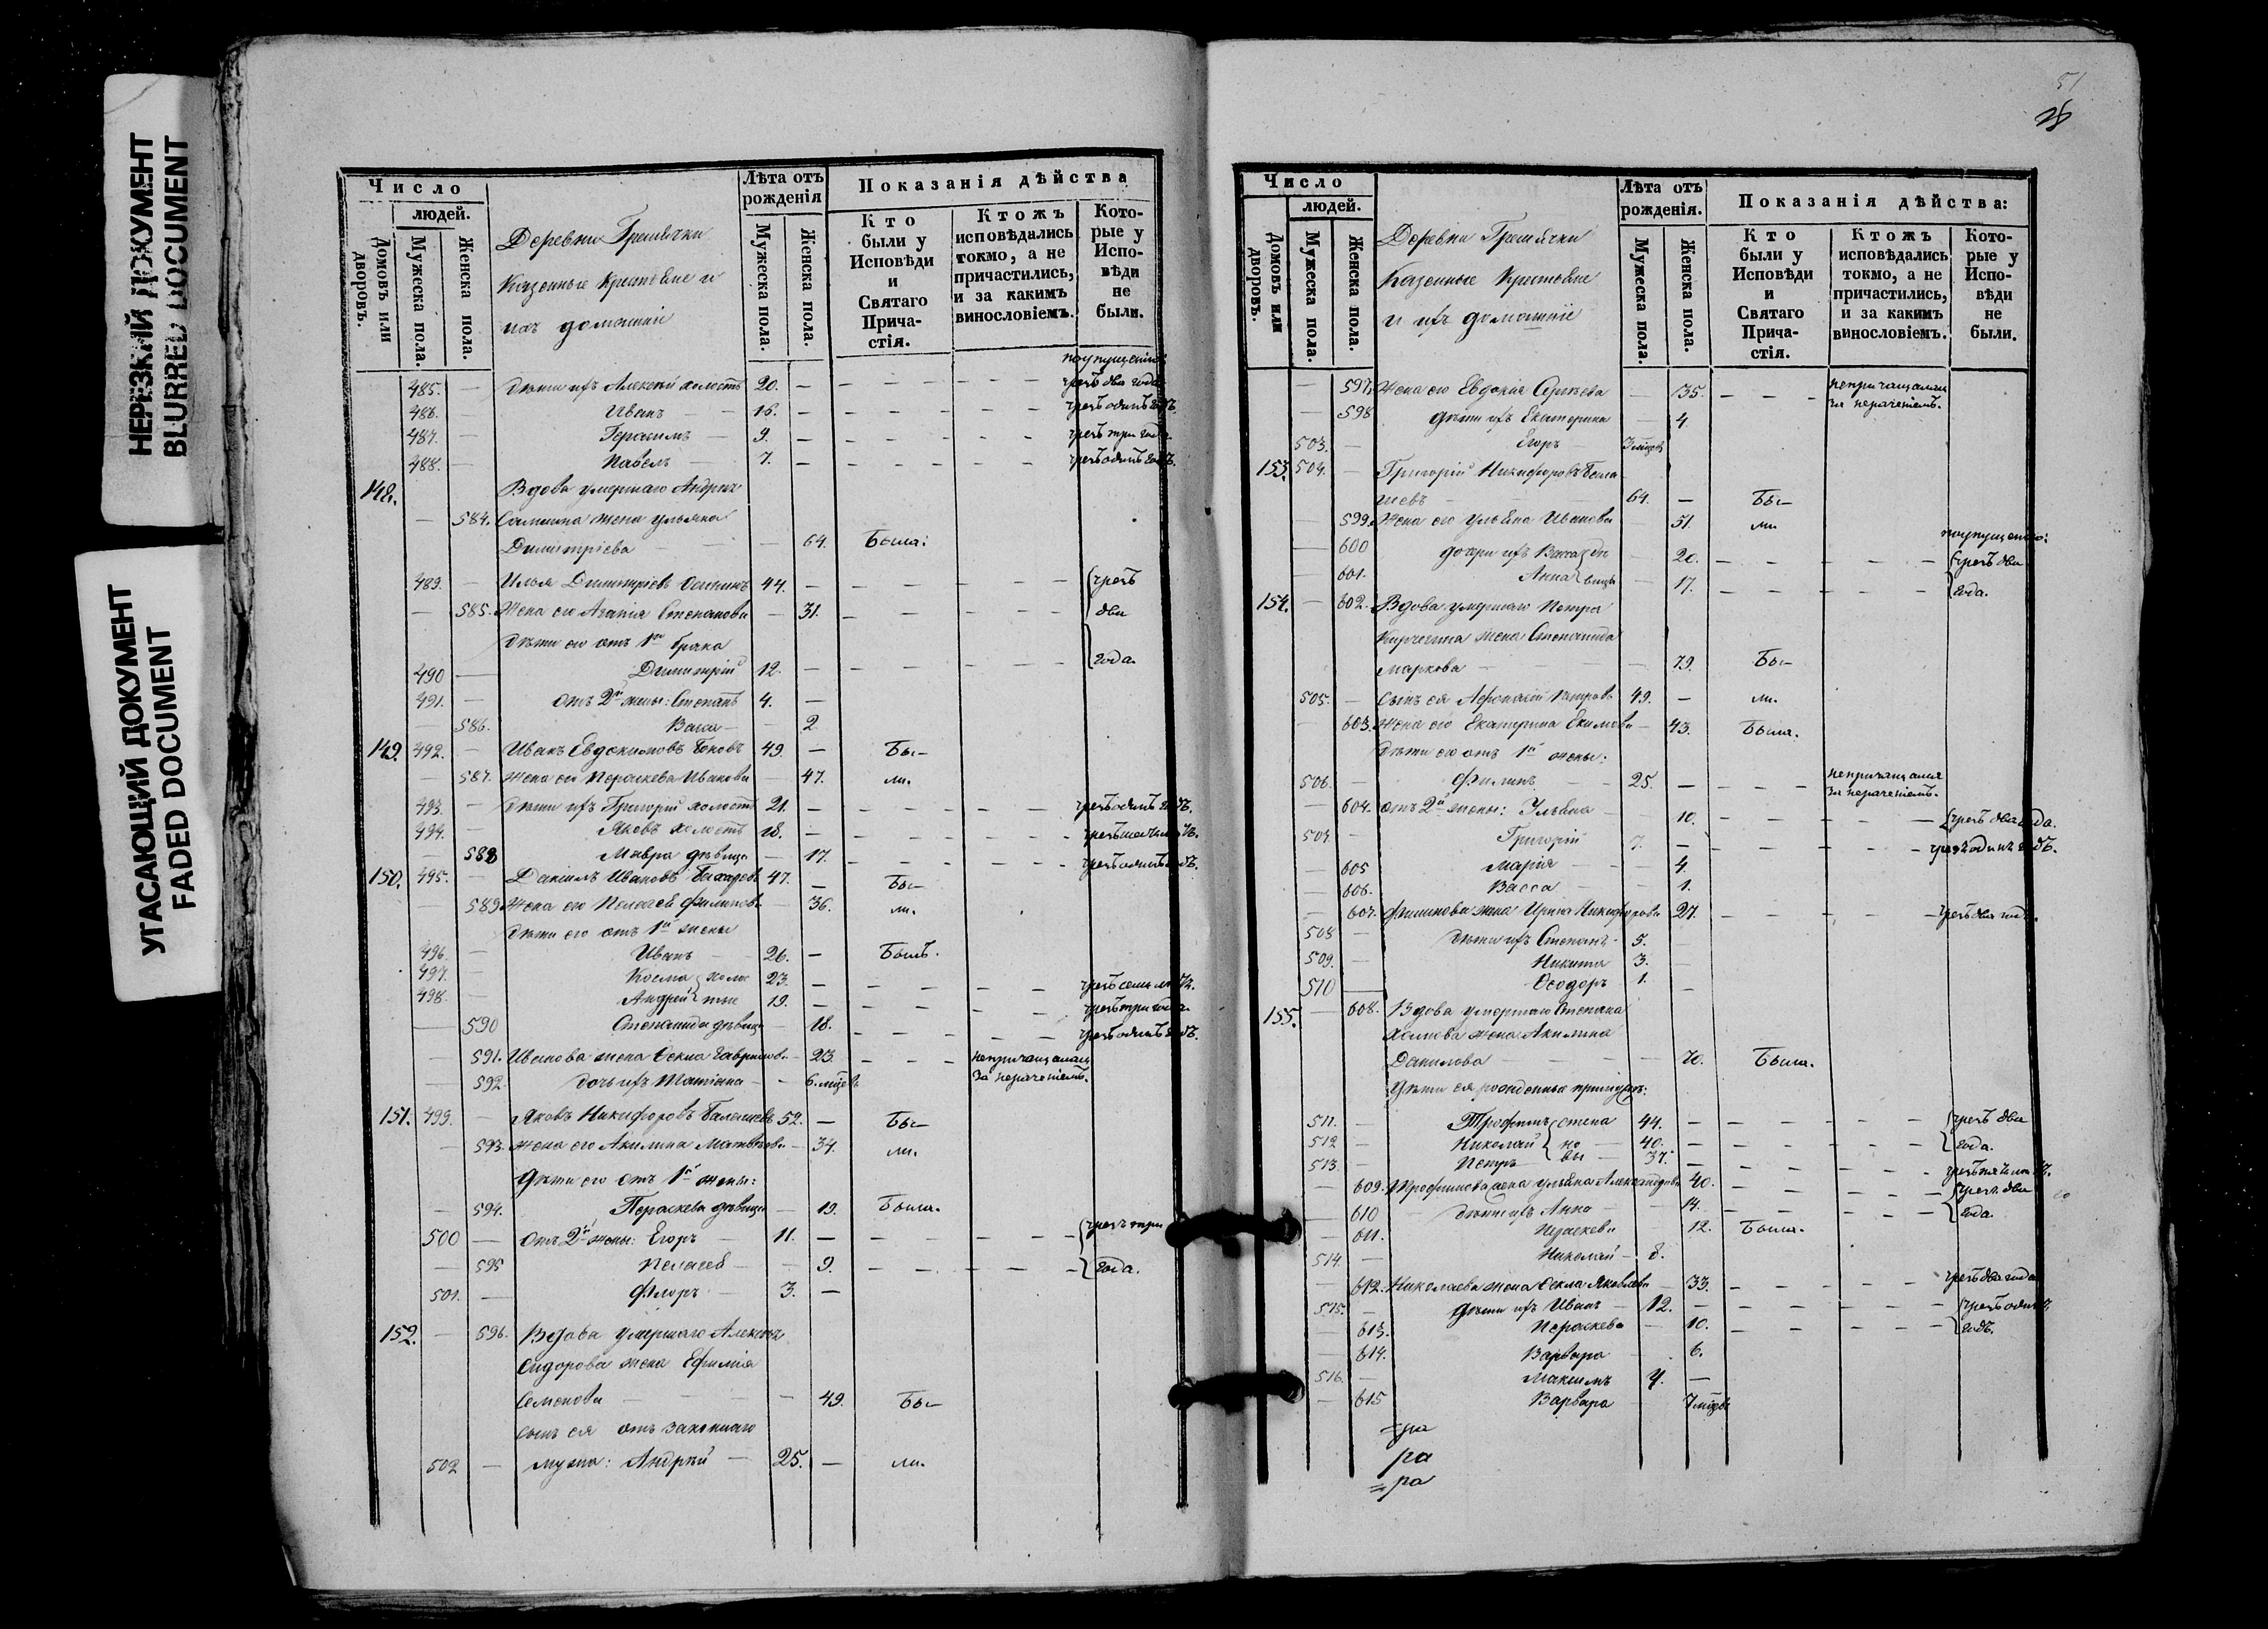 НЕРЕЗКИЙ ДОКУМЕНТ
BLURRED DOCUMENT
УГАСАЮЩИЙ ДОКУМЕНТ
FADED DOCUMENT
Число
людей.
Домовъ или дворовъ.
Мужеска пола.
Женска пола.
Деревни Гремячки
Казенные крестьяне и
ихъ домашніи
Лѣта отъ рожденія
Мужеска пола.
Женска пола.
Показанія дѣйства
Кто были у Исповѣди и Святаго Причастія.
Ктожъ исповѣдались токмо, а не причастились, и за какимъ винословіемъ.
Которые у Исповѣди не были.
поупущенію
485. — дѣти ихъ Алексѣй холостъ 20. — чрезъ два года
486. Иванъ 16. — чрезъ одинъ годъ.
487. — Герасимъ — 9. — чрезъ три года
488. — Павелъ — 7. — чрезъ одинъ годъ.
148. Вдова умершаго Андрея
— 584. жена Ульяна
Димитріева — 64. Была:
489. — Илья Димитріевъ 44. — чрезъ
— 585. Жена его Агапія Степанова — 31. — два
дѣти его отъ 1го брака
490 — Димитрій 12. — года.
491. — отъ 2й жены: Степанъ 4. —
— 586. Васса — 2
149. 492. — Иванъ Евдокимовъ 49. — Бы—
— 587. Жена его Параскева Иванова — 47. ли.
493. — дѣти ихъ Григорій холостъ 21. — чрезъ одинъ годъ.
494. — Яковъ холостъ 18. —
— 588 Мавра дѣвица — 17. чрезъ одинъ годъ.
150. 495. — Даніилъ Ивановъ 47. — Бы—
— 589. Жена его Пелагея Филипова — 36. ли.
дѣти его отъ 1й жены
496. — Иванъ — 26. — Былъ.
497. — Косма холос 23. — чрезъ семь лѣтъ.
498. — Андрей тые 19. — чрезъ три года.
— 590 Степанида дѣвица — 18. чрезъ одинъ годъ.
— 591. Иванова жена Ѳекла Гаврилова — 23. — непричащалась
— 592. дочь ихъ Татіана — 6. мѣсяцъ за нераченіемъ.
151. 499. — Яковъ Никифоровъ 52. — Бы—
— 593. Жена его Акилина Матвѣева — 34. ли.
Дѣти его отъ 1й жены:
— 594. Параскева дѣвица — 19. Была.
500 — отъ 2й жены: Егоръ — 11. — чрезъ три
— 595 Пелагея — 9. — года.
501. — Флоръ — 3. —
152. — 596. Вдова умершаго Алексѣя
Сидорова жена Ефимія
Семенова — 49. Бы—
сынъ ея отъ законнаго
502 — мужа: Андрей — 25. — ли.
51
Число
людей.
Домовъ или дворовъ.
Мужеска пола.
Женска пола.
Деревни Гремячки
Казенные крестьяне
и ихъ домашніи
Лѣта отъ рожденія.
Мужеска пола.
Женска пола.
Показанія дѣйства:
Кто были у Исповѣди и Святаго Причастія.
Ктожъ исповѣдались токмо, а не причастились, и за какимъ винословіемъ.
Которые у Исповѣди не были.
— 597. Жена его Евдокія Сергѣева — 35. — непричащалась
за нераченіемъ.
— 598 дѣти ихъ Екатерина — 4
503. — Егоръ — 3 мѣсяцъ
153. 504. — Григорій Никифоровъ
64. — Бы—
— 599. Жена его Ульяна Иванова — 51. ли.
поупущенію:
— 600 дочери ихъ Васса дѣ 20. — чрезъ два
— 601. Анна вицы — 17. — года.
154. — 602. Вдова умершаго Петра
жена Степанида
Маркова — 79. Бы—
505. — сынъ ея Афанасій Петровъ 49. — ли.
— 603. Жена его Екатерина Екимова — 43. Была.
Дѣти его отъ 1й жены:
506. — Филипъ — 25. — непричащался
за нераченіемъ.
— 604. отъ 2й жены: Ульяна 10. — чрезъ два года.
507 — Григорій 7. — чрезъ одинъ годъ.
— 605 Марія — 4.
— 606. Васса — 1.
— 607. Филипова жена Ирина Никифорова 27. — чрезъ два года.
508 — дѣти ихъ Степанъ — 5. —
509. — Никита 3. —
510 — Ѳеодоръ 1. —
155. — 608. Вдова умершаго Степана
жена Акилина
Данилова — 70. Была.
Дѣти ея рожденные при мужѣ:
511. — Трофимъ степа 44. — чрезъ два
512 — Николай но 40. — года.
513. — Петръ вы 37. —
— 609. Трофимова жена Ульяна Александрова 40. — чрезъ два
— 610 — дѣти ихъ Анна — 14. — года.
— 611. Параскева — 12. Была.
514. — Николай — 8.
— 612. Николаева жена Ѳекла Яковлева — 33. — чрезъ два года
515. — дѣти ихъ Иванъ — 12. — чрезъ одинъ
— 613. Параскева — 10. — годъ.
— 614. Варвара — 6.
516. — Максимъ 4. —
— 615 Варвара — 7 мѣсяцъ
ра
ра